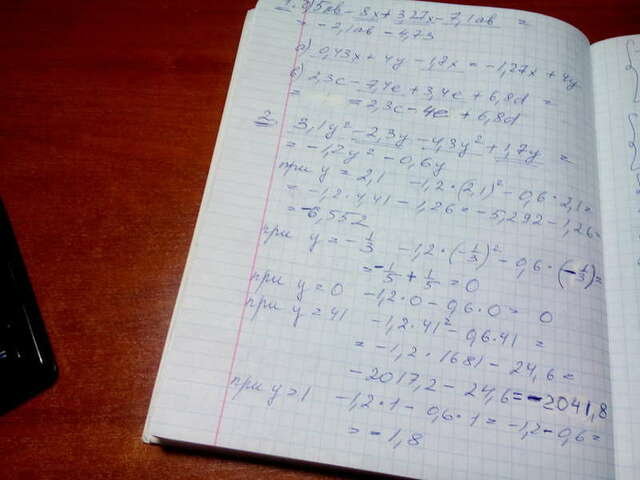 1. б) 5ab - 8x + 3,27x - 7,1ab =
= -2,1ab - 4,73
а) 0,43x + 4y - 1,7x = -1,27x + 4y
в) 2,3c - 7,4e + 3,4e + 6,8d =
= = 2,3c - 4e + 6,8d
2. 3,1y² - 2,3y - 4,3y² + 1,7y =
= -1,2y² - 0,6y
при y = 2,1 -1,2·(2,1)² - 0,6·2,1 =
= -1,2·4,41 - 1,26 = -5,292 - 1,26 =
= -6,552
при y = -1/3 -1,2·(-1/3)² - 0,6·(-1/3) =
= -1/5 + 1/5 = 0
при y = 0 -1,2·0 - 0,6·0 = 0
при y = 41 -1,2·41² - 0,6·41 =
= -1,2·1681 - 24,6 =
-2017,2 - 24,6 = -2041,8
при y = 1 -1,2·1 - 0,6·1 = -1,2 - 0,6 =
= -1,8